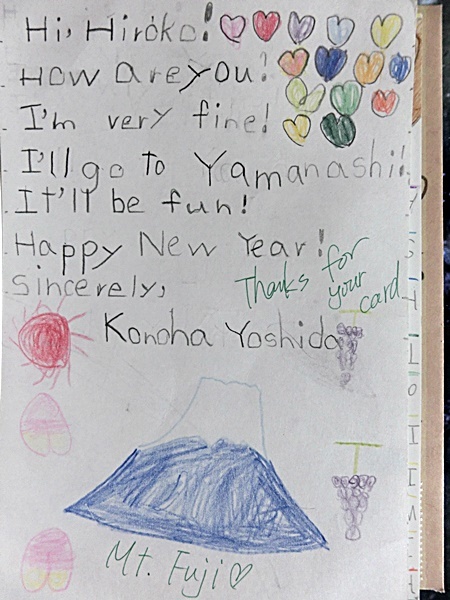 Hi, Hiroko!
How are you?
I'm very fine!
I'll go to Yamanashi!
It'll be fun!
Happy New Year!
Sincerely,
Thanks for
your
card
Konoha Yoshida
Mt. Fuji♡